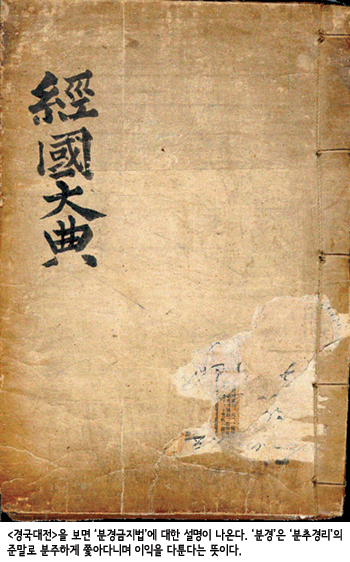 經國大典
<경국대전>을 보면 ‘분경금지법’에 대한 설명이 나온다. ‘분경’은 ‘분추경리’의
준말로 분주하게 쫓아다니며 이익을 다툰다는 뜻이다.